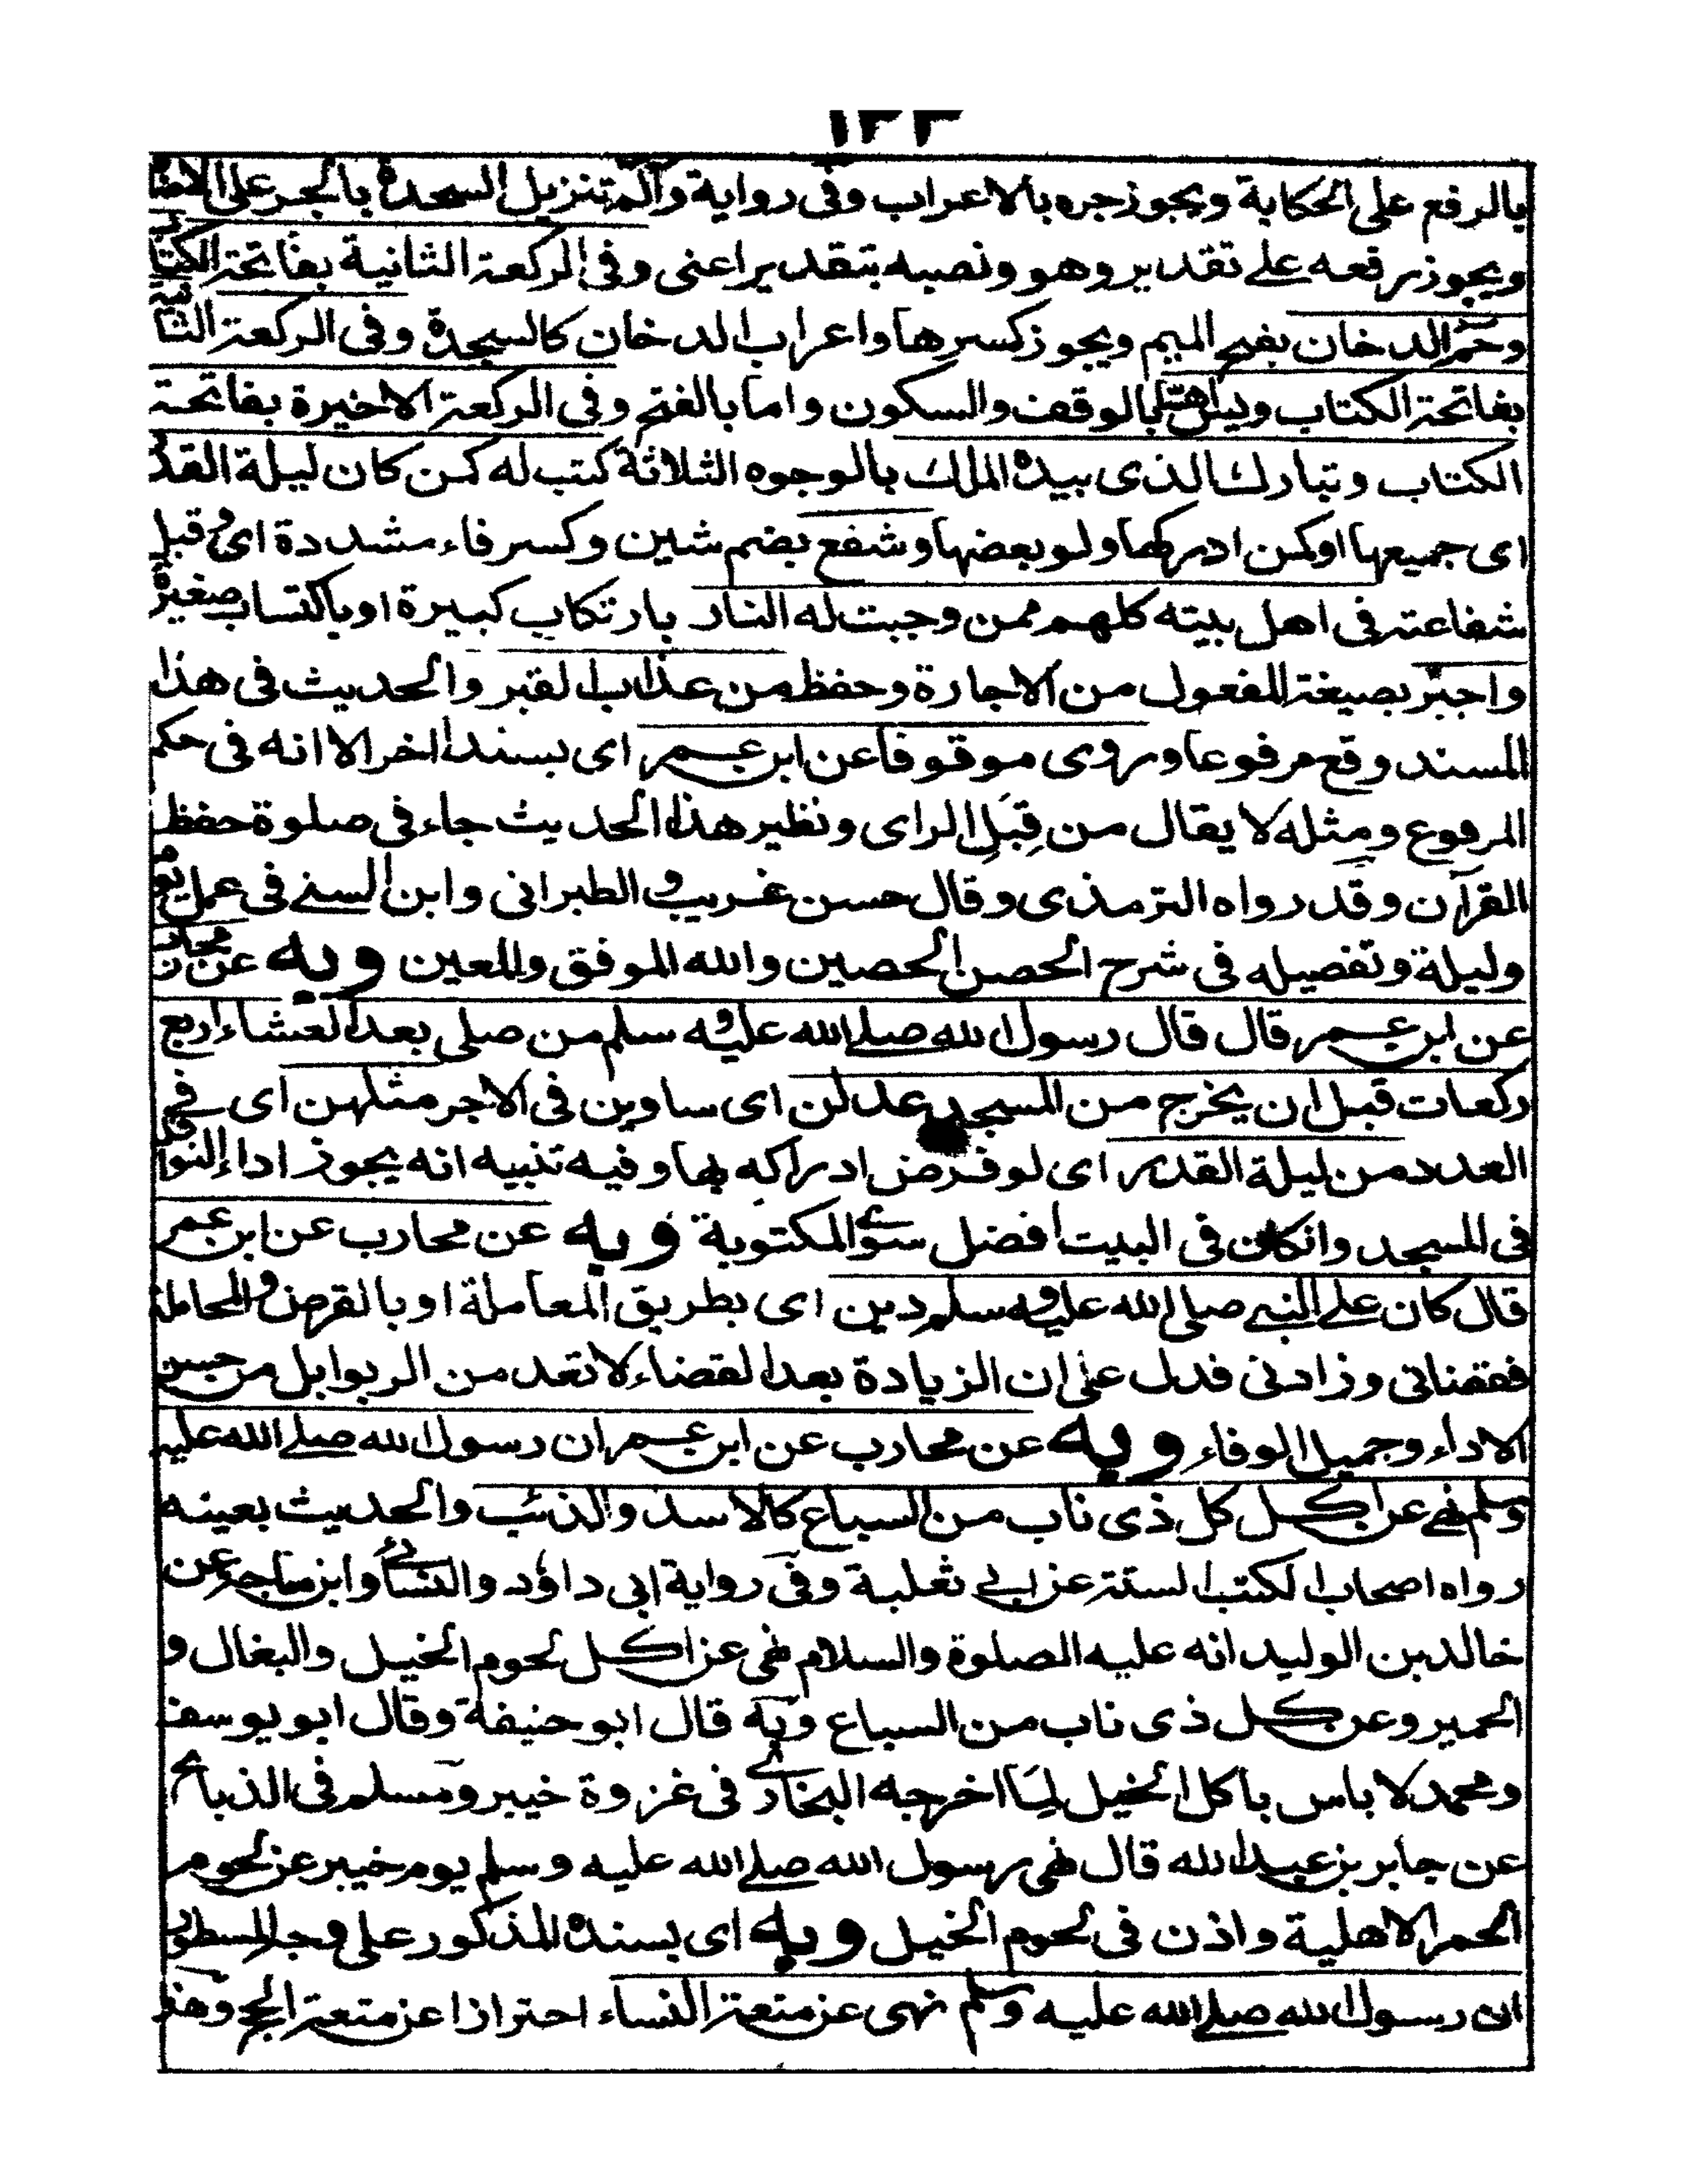 ١٣٣
بالرفع على الحكاية ويجوز جره بالاعراب وفى رواية والٓم تنزيل السجدة بالجر على الاضا
ويجوز رفعه علے تقدير وهو ونصبه بتقدير اعنى وفى الركعة الثانية بفاتحة الكتا
وحٓم الدخان بفتح الميم ويجوز كسرها واعراب الدخان كالسجدة وفى الركعة الثالثة
بفاتحة الكتاب ويٰس بالوقف والسكون واما بالفتح وفى الركعة الاخيرة بفاتحة
الكتاب وتبارك الذى بيده الملك بالوجوه الثلاثة كتب له كمن كان ليلة القدر
اى جميعها او كمن ادركها ولو بعضها وشفع بضم شين وكسر فاء مشددة اى وقبل
شفاعته فى اهل بيته كلهم ممن وجبت له النار بارتكاب كبيرة او باكتساب صغيرة
واجير بصيغة المفعول من الاجارة وحفظ من عذاب القبر والحديث فى هذا
المسند وقع مرفوعا وروى موقوفا عن ابن عمر اى بسند اخر الا انه فى حكم
المرفوع ومثله لا يقال من قِبَلِ الراى ونظير هذا الحديث جاء فى صلوة حفظ
القرآن وقد رواه الترمذى وقال حسن غريب و الطبرانى وابن السنے فى عمل يوم
وليلة وتفصيله فى شرح الحصن الحصين والله الموفق والمعين وبه عن محارب
عن ابن عمر قال قال رسول الله صلے الله عليه و سلم من صلى بعد العشاء اربع
ركعات قبل ان يخرج من المسجد عدلن اى ساوين فى الاجر مثلهن اى فے
العدد من ليلة القدر اى لو فرض ادراكه بها وفيه تنبيه انه يجوز اداء النوافل
فى المسجد وانكان فى البيت افضل سوے المكتوبة وبه عن محارب عن ابن عمر
قال كان علے النبے صلى الله عليه و سلم دين اى بطريق المعاملة او بالقرض والمجاملة
فقضانى وزادنى فدل على ان الزيادة بعد القضاء لا تعد من الربوا بل من حسن
الاداء وجميل الوفاء وبه عن محارب عن ابن عمر ان رسول الله صلے الله عليه
وسلم نهے عن اكل كل ذى ناب من السباع كالاسد والذئب والحديث بعينه
رواه اصحاب الكتب الستة عن ابے ثعلبة وفى رواية ابى داؤد والنسائے وابن ماجة عن
خالد بن الوليد انه عليه الصلوة والسلام نهى عن اكل لحوم الخيل والبغال و
الحمير وعن كل ذى ناب من السباع وبه قال ابو حنيفة وقال ابو يوسف
ومحمد لا باس باكل الخيل لِمَا اخرجه البخارے فى غزوة خيبر ومسلم فى الذبائح
عن جابر بن عبد الله قال نهى رسول الله صلے الله عليه وسلم يوم خيبر عن لحوم
الحمر الاهلية واذن فى لحوم الخيل وبه اى بسنده المذكور على وجه المسطور
ان رسول الله صلے الله عليه وسلم نهى عن متعة النساء احترازا عن متعة الحج وهذ